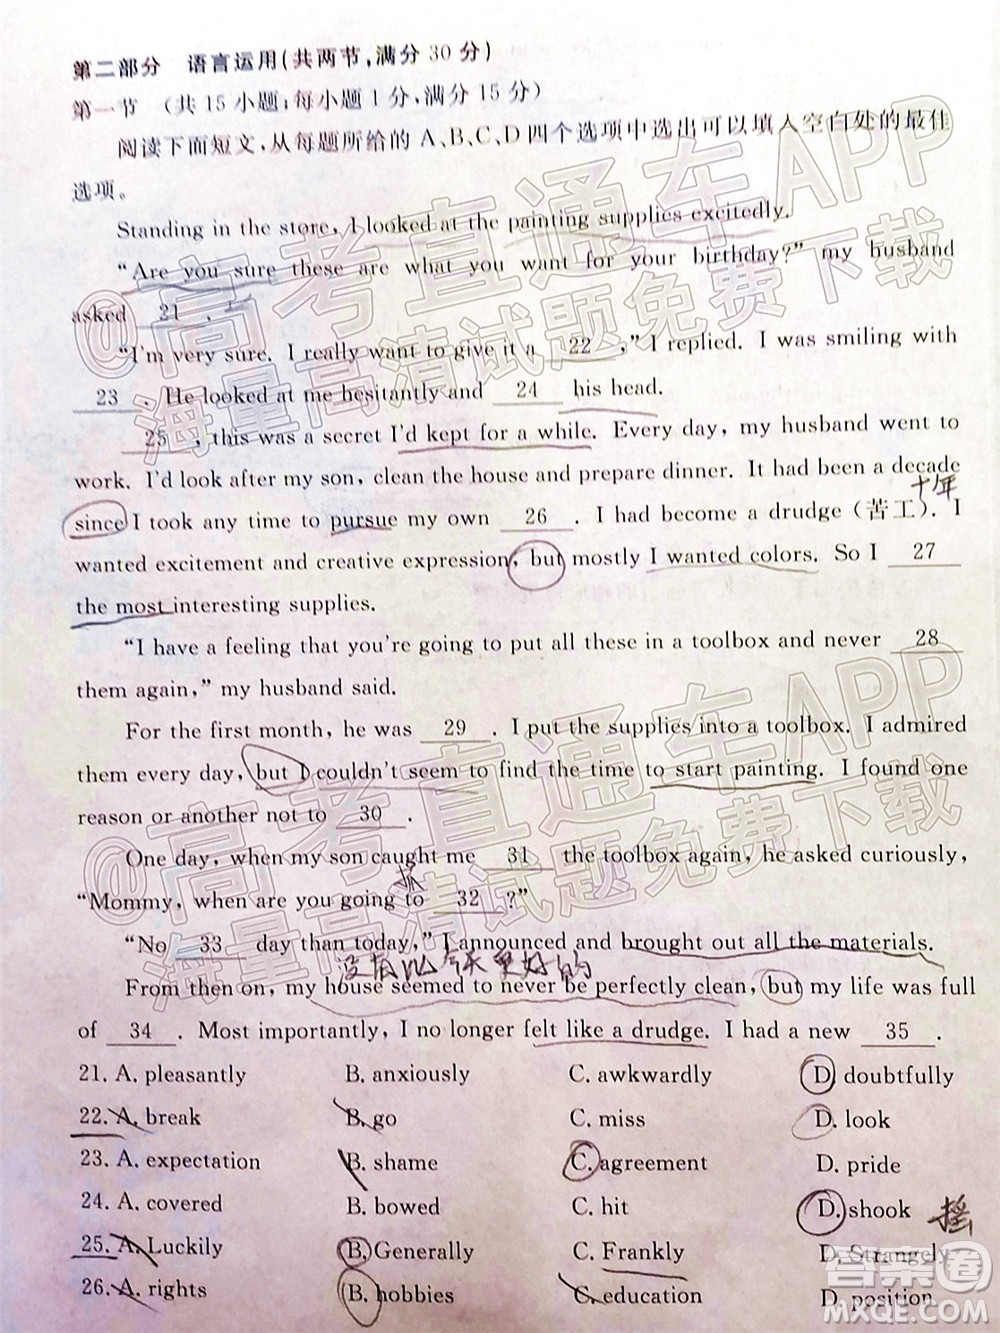 第二部分 语言运用(共两节,满分30分)
第一节 (共15小题;每小题1分,满分15分)
阅读下面短文,从每题所给的A、B、C、D四个选项中选出可以填入空白处的最佳
选项。
Standing in the store, I looked at the painting supplies excitedly.
“Are you sure these are what you want for your birthday?” my husband
asked 21 .
“I'm very sure. I really want to give it a 22 ,” I replied. I was smiling with
23 . He looked at me hesitantly and 24 his head.
25 , this was a secret I'd kept for a while. Every day, my husband went to
work. I'd look after my son, clean the house and prepare dinner. It had been a decade
十年
since I took any time to pursue my own 26 . I had become a drudge (苦工). I
wanted excitement and creative expression, but mostly I wanted colors. So I 27
the most interesting supplies.
“I have a feeling that you're going to put all these in a toolbox and never 28
them again,” my husband said.
For the first month, he was 29 . I put the supplies into a toolbox. I admired
them every day, but I couldn't seem to find the time to start painting. I found one
reason or another not to 30 .
One day, when my son caught me 31 the toolbox again, he asked curiously,
抓
“Mommy, when are you going to 32 ?”
“No 33 day than today,” I announced and brought out all the materials.
没有比今天更好的
From then on, my house seemed to never be perfectly clean, but my life was full
of 34 . Most importantly, I no longer felt like a drudge. I had a new 35 .
21. A. pleasantly B. anxiously C. awkwardly D. doubtfully
22. A. break B. go C. miss D. look
23. A. expectation B. shame C. agreement D. pride
24. A. covered B. bowed C. hit D. shook 摇
25. A. Luckily B. Generally C. Frankly D. Strangely
26. A. rights B. hobbies C. education D. position
@高考直通车APP
海量高清试题免费下载
@高考直通车APP
海量高清试题免费下载
答案圈
MXQE.COM